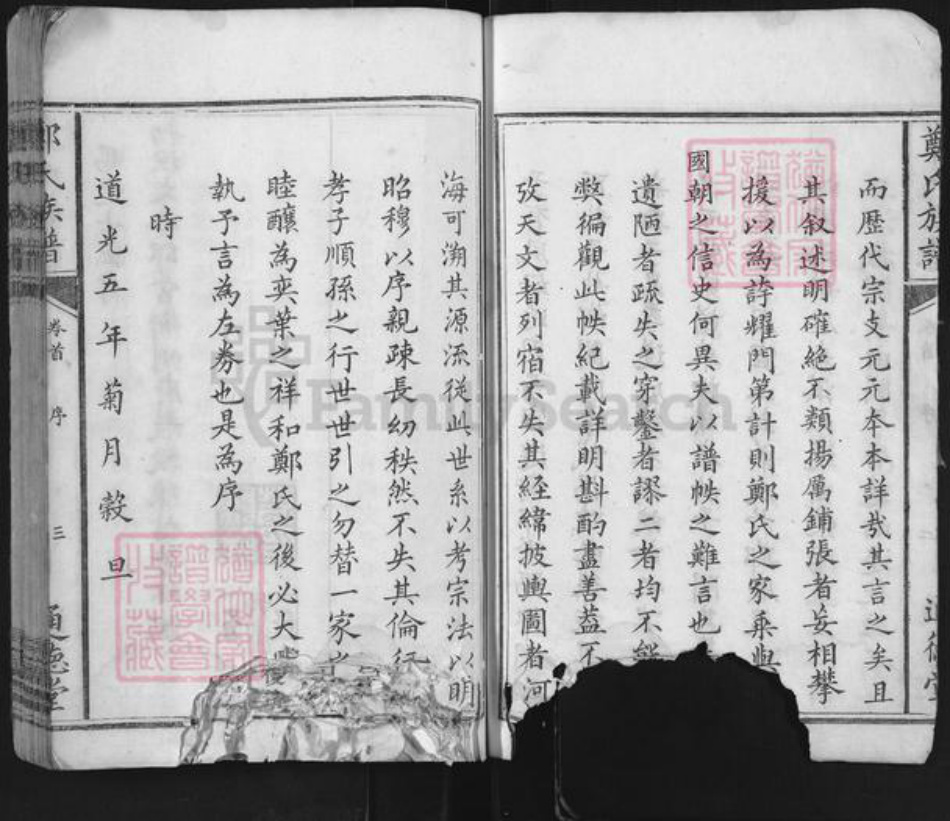 鄭氏族譜
而歷代宗支元元本本詳哉其言之矣且
其叙述明確絶不類揚厲鋪張者妄相攀
援以為誇耀門第計則鄭氏之家乘與
國朝之信史何異夫以譜帙之難言也
遺陋者疏失之穿鑿者謬二者均不能
獘徧觀此帙紀載詳明斟酌盡善葢不
攷天文者列宿不失其經緯披輿圖者河
海可溯其源流從此世系以考宗法以明
昭穆以序親疎長幼秩然不失其倫
孝子順孫之行世世引之勿替一家
睦釀為奕葉之祥和鄭氏之後必大
執予言為左券也是為序
時
道光五年菊月穀旦
氏族譜
卷首 序 三 通德堂
FamilySearch